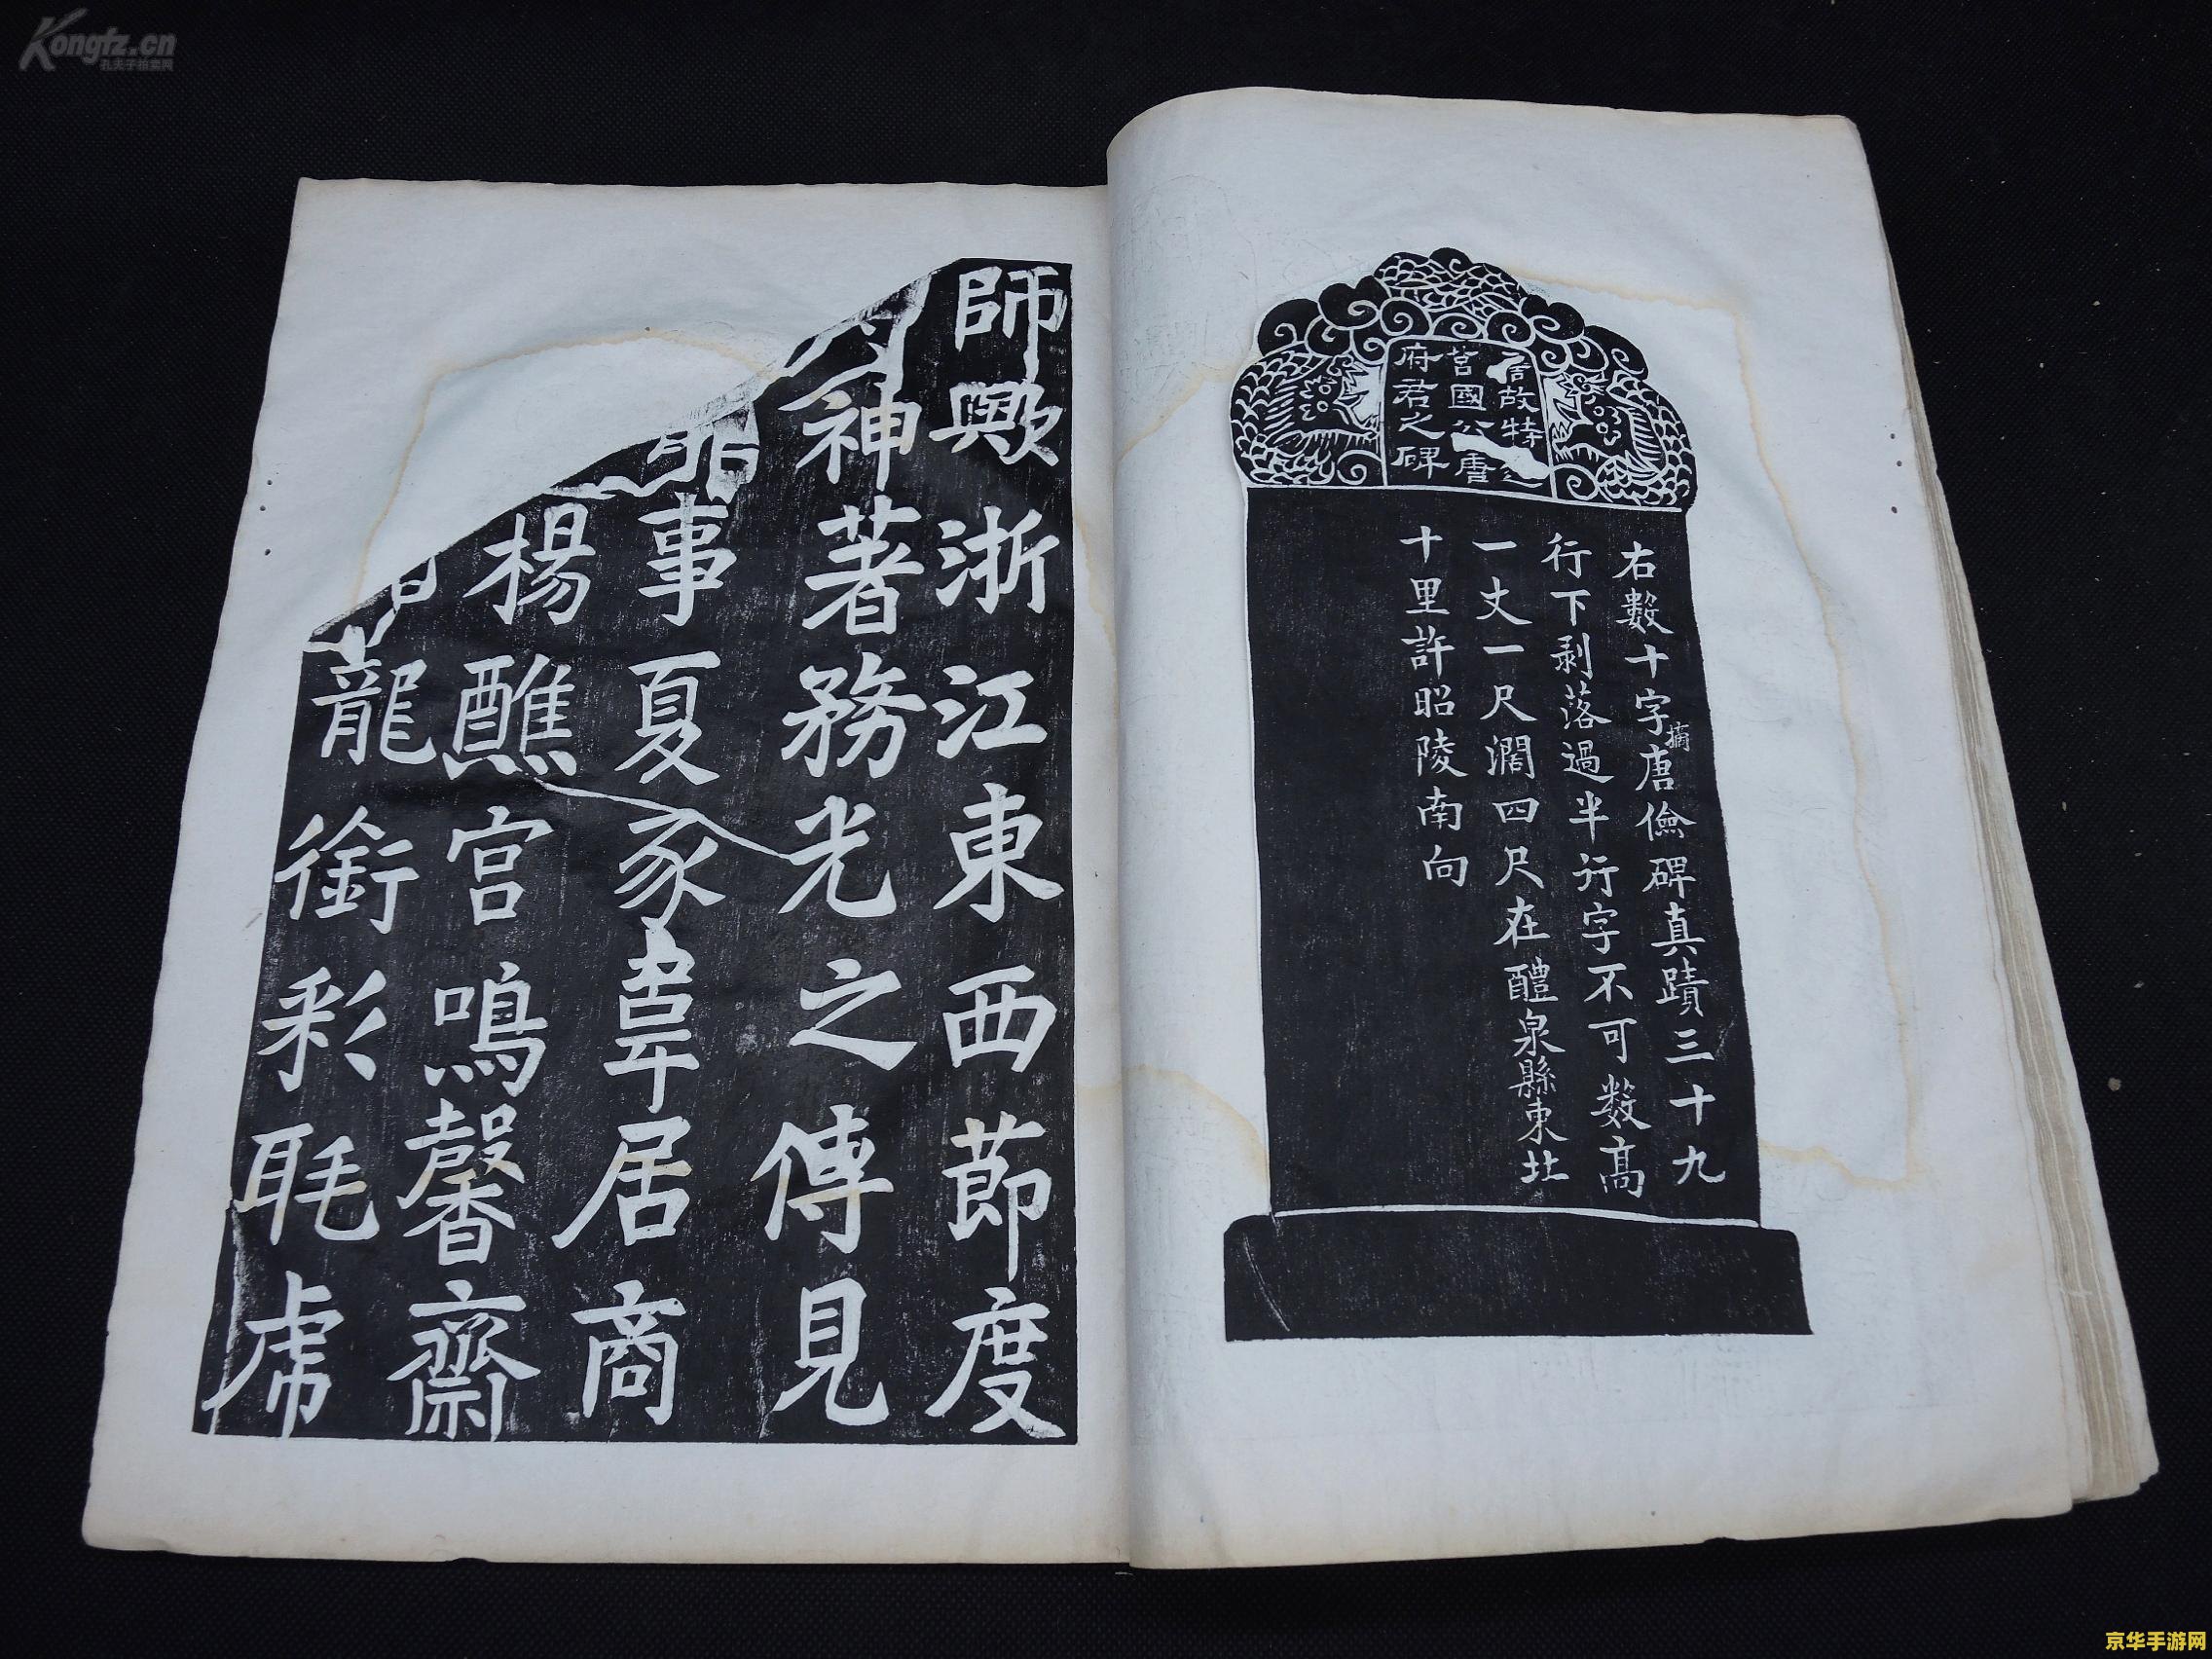 Kongfz.cn
孔夫子拍卖网
故特
莒國公唐
府君之碑
右數十字摘唐儉碑真蹟三十九
行下剥落過半行字不可数髙
一丈一尺濶四尺在醴泉縣東北
十里許昭陵南向
師歟浙江東西莭度
神著務光之傳見
事夏豕韋居商
楊醮宫鳴馨齋
龍銜彩毦
京华手游网